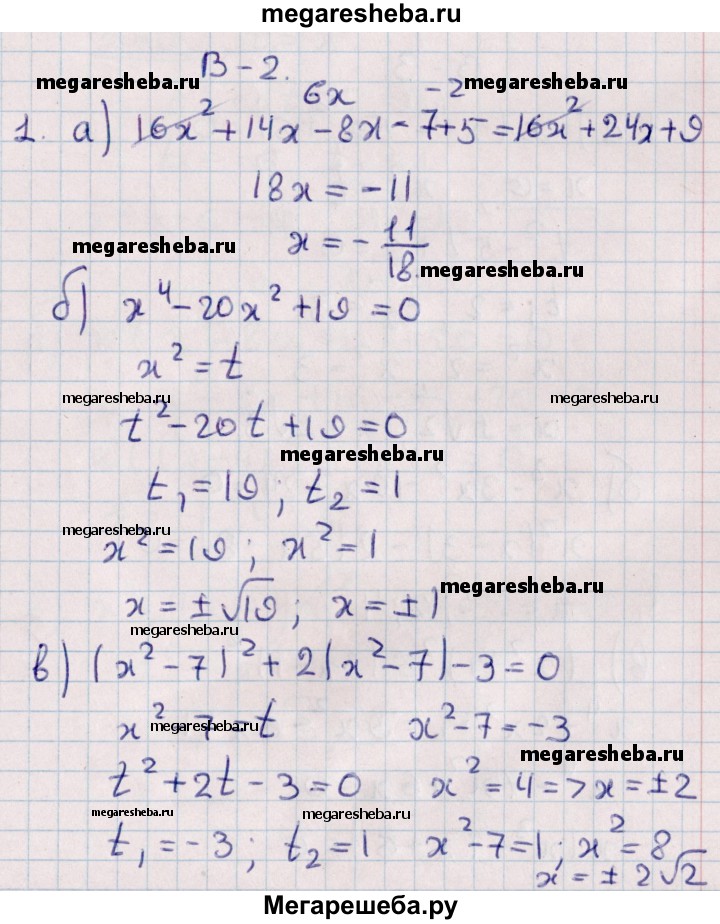 megaresheba.ru
В-2.
megaresheba.ru 6x -2 megaresheba.ru
1. а) 16x² + 14x - 8x - 7 + 5 = 16x² + 24x + 9
18x = -11
megaresheba.ru x = - 11/18. megaresheba.ru
б) x⁴ - 20x² + 19 = 0
x² = t
megaresheba.ru megaresheba.ru
t² - 20t + 19 = 0
megaresheba.ru
t₁ = 19; t₂ = 1
megaresheba.ru
x² = 19; x² = 1
megaresheba.ru
x = ±√19; x = ±1
megaresheba.ru
в) (x² - 7)² + 2(x² - 7) - 3 = 0
x² - 7 = t x² - 7 = -3
megaresheba.ru
megaresheba.ru
t² + 2t - 3 = 0 x² = 4 => x = ±2
megaresheba.ru megaresheba.ru
t₁ = -3; t₂ = 1 x² - 7 = 1; x² = 8
x = ± 2√2
Мегарешеба.ру